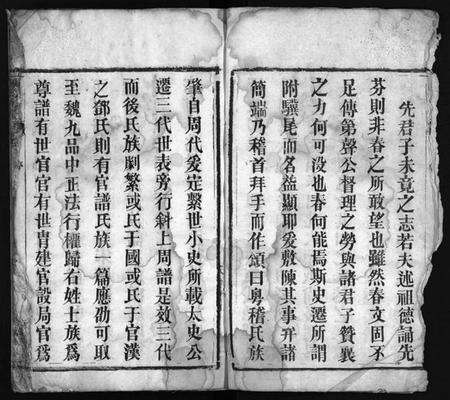 先君子未竟之志若夫述祖德誦先
芬則非春之所敢望也雖然春文固不
足傳第聲公督理之勞與諸君子贊襄
之力何可没也春何能焉斯史遷所謂
附驥尾而名益顯耶爰敷陳其事弁諸
簡端乃稽首拜手而作頌曰粤稽氏族
肇自周代爰定繫世小史所載太史公
遷三代世表旁行斜上周譜是效三代
而後氏族剧繁或氏于國或氏于官漢
之鄧氏則有官譜氏族一篇應劭可取
至魏九品中正法行權歸右姓士族爲
尊譜有世官官有世冑建官設局官爲